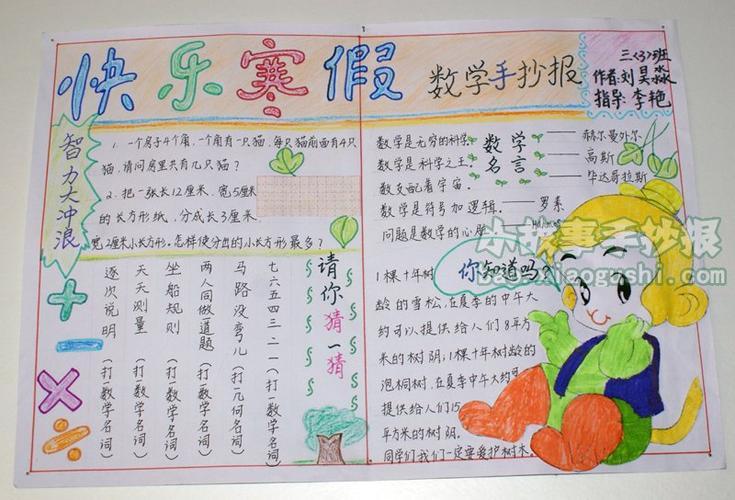 快乐寒假
数学手抄报
三〈3〉班
作者:刘昊淼
指导:李艳
智力大冲浪
1. 一个房子4个角,一个角有一只猫,每只猫前面有4只
猫,请问房里共有几只猫?
2. 把一张长12厘米,宽5厘米
的长方形纸,分成长3厘米,
宽2厘米小长方形。怎样使分出的小长方形最多?
请你猜一猜
七六五四三二一(打一数学名词)
马路没弯儿(打一几何名词)
两人同做道题(打一数学名词)
坐船规则(打一数学名词)
天天测量(打一数学名词)
逐次说明(打一数学名词)
数学名言
数学是无穷的科学 —— 赫尔曼外尔
数学是科学之王 —— 高斯
数支配着宇宙。 —— 毕达哥拉斯
数学是符号加逻辑 —— 罗素
问题是数学的心脏
你知道吗?
1棵十年树
龄的雪松,在夏季的中午大
约可以提供给人们8平方
米的树阴;1棵十年树龄的
泡桐树,在夏季中午大约可
提供给人们15
平方米的树阴。
同学们我们一定要爱护树木
小故事手抄报